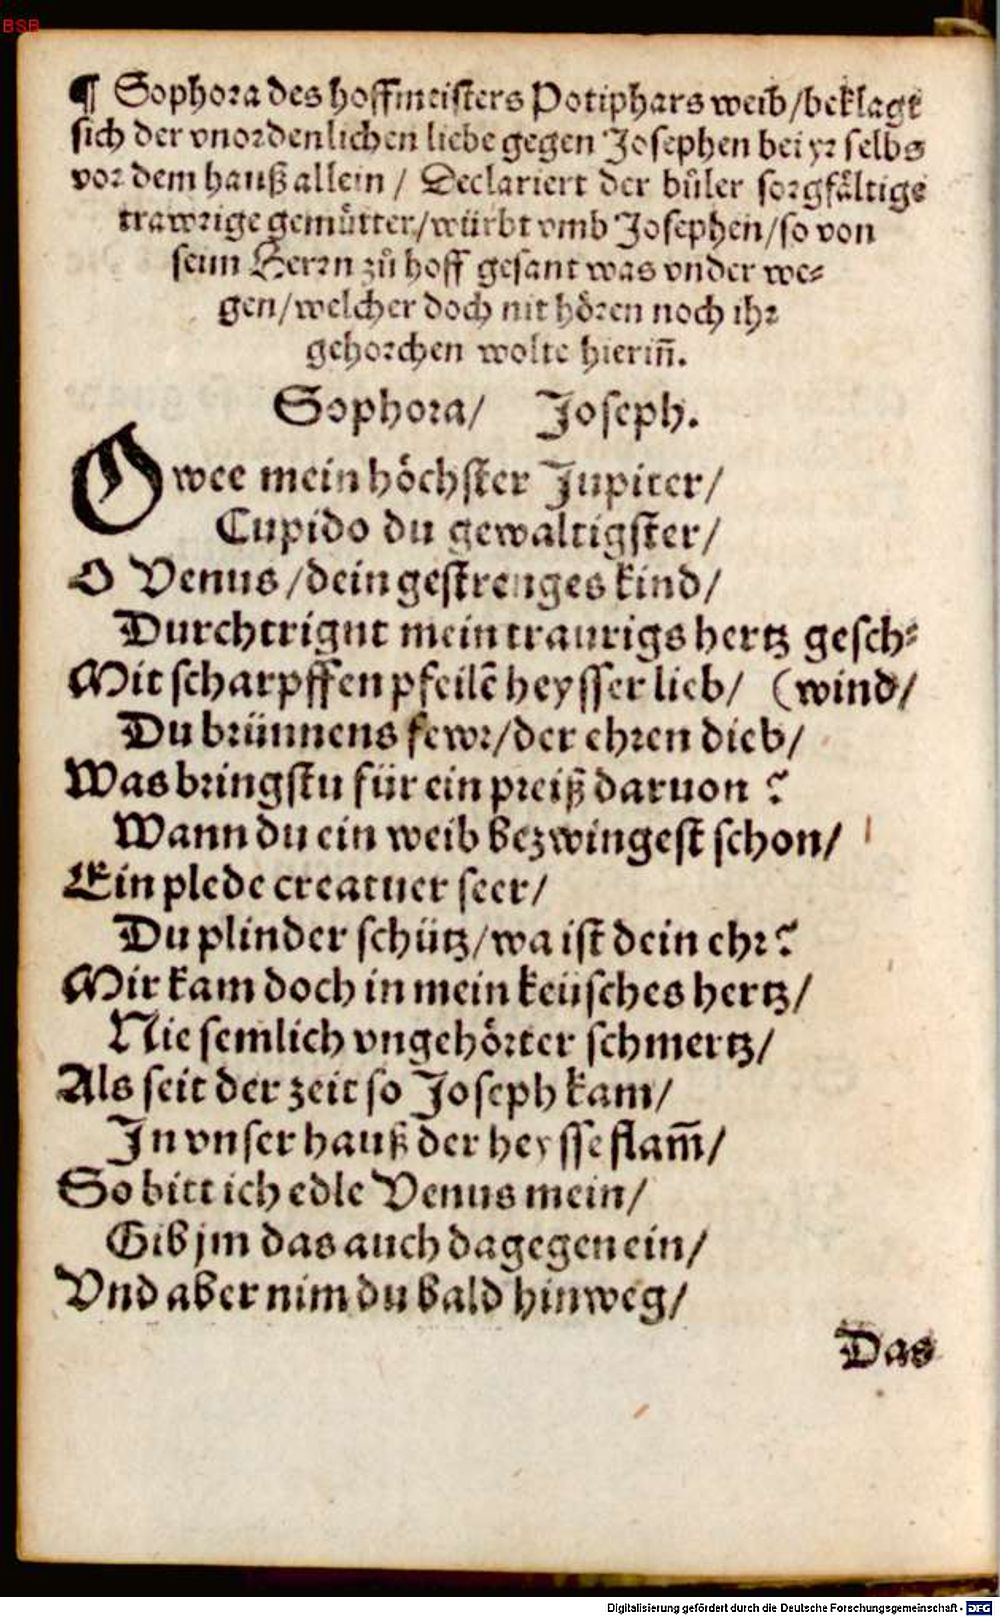 BSB
¶ Sophora des hoffmeisters Potiphars weib/beklagt
sich der vnordenlichen liebe gegen Josephen bei yr selbs
vor dem hauß allein / Declariert der bůler sorgfåltige
trawrige gemůtter/würbt vmb Josephen/so von
seim Herrn zů hoff gesant was vnder we⸗
gen/welcher doch nit hören noch ihr
gehorchen wolte hieriñ.
Sophora/ Joseph.
O wee mein höchster Jupiter/
Cupido du gewaltigster/
O Venus /dein gestrenges kind/
Durchtrignt mein traurigs hertz gesch⸗
Mit scharpffen pfeilē heysser lieb/ (wind/
Du brünnens fewr/der ehren dieb/
Was bringstu für ein preiß daruon ?
Wann du ein weib bezwingest schon/
Ein plede creatuer seer/
Du plinder schütz/wa ist dein ehr?
Mir kam doch in mein keüsches hertz/
Nie semlich vngehörter schmertz/
Als seit der zeit so Joseph kam/
In vnser hauß der heysse flam̄/
So bitt ich edle Venus mein/
Gib jm das auch dagegen ein/
Vnd aber nim du bald hinweg/
Das
Digitalisierung gefördert durch die Deutsche Forschungsgemeinschaft - DFG